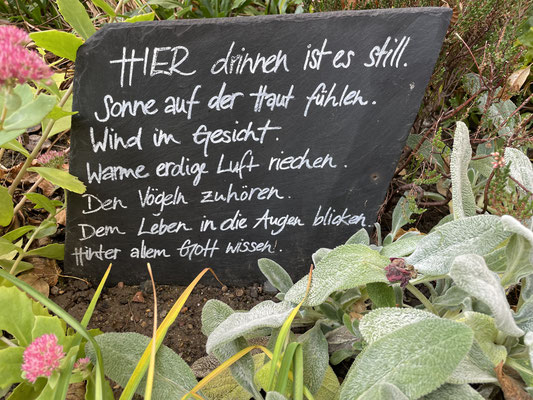 HIER drinnen ist es still.
Sonne auf der Haut fühlen.
Wind im Gesicht.
Warme erdige Luft riechen.
Den Vögeln zuhören.
Dem Leben in die Augen blicken
Hinter allem Gott wissen!